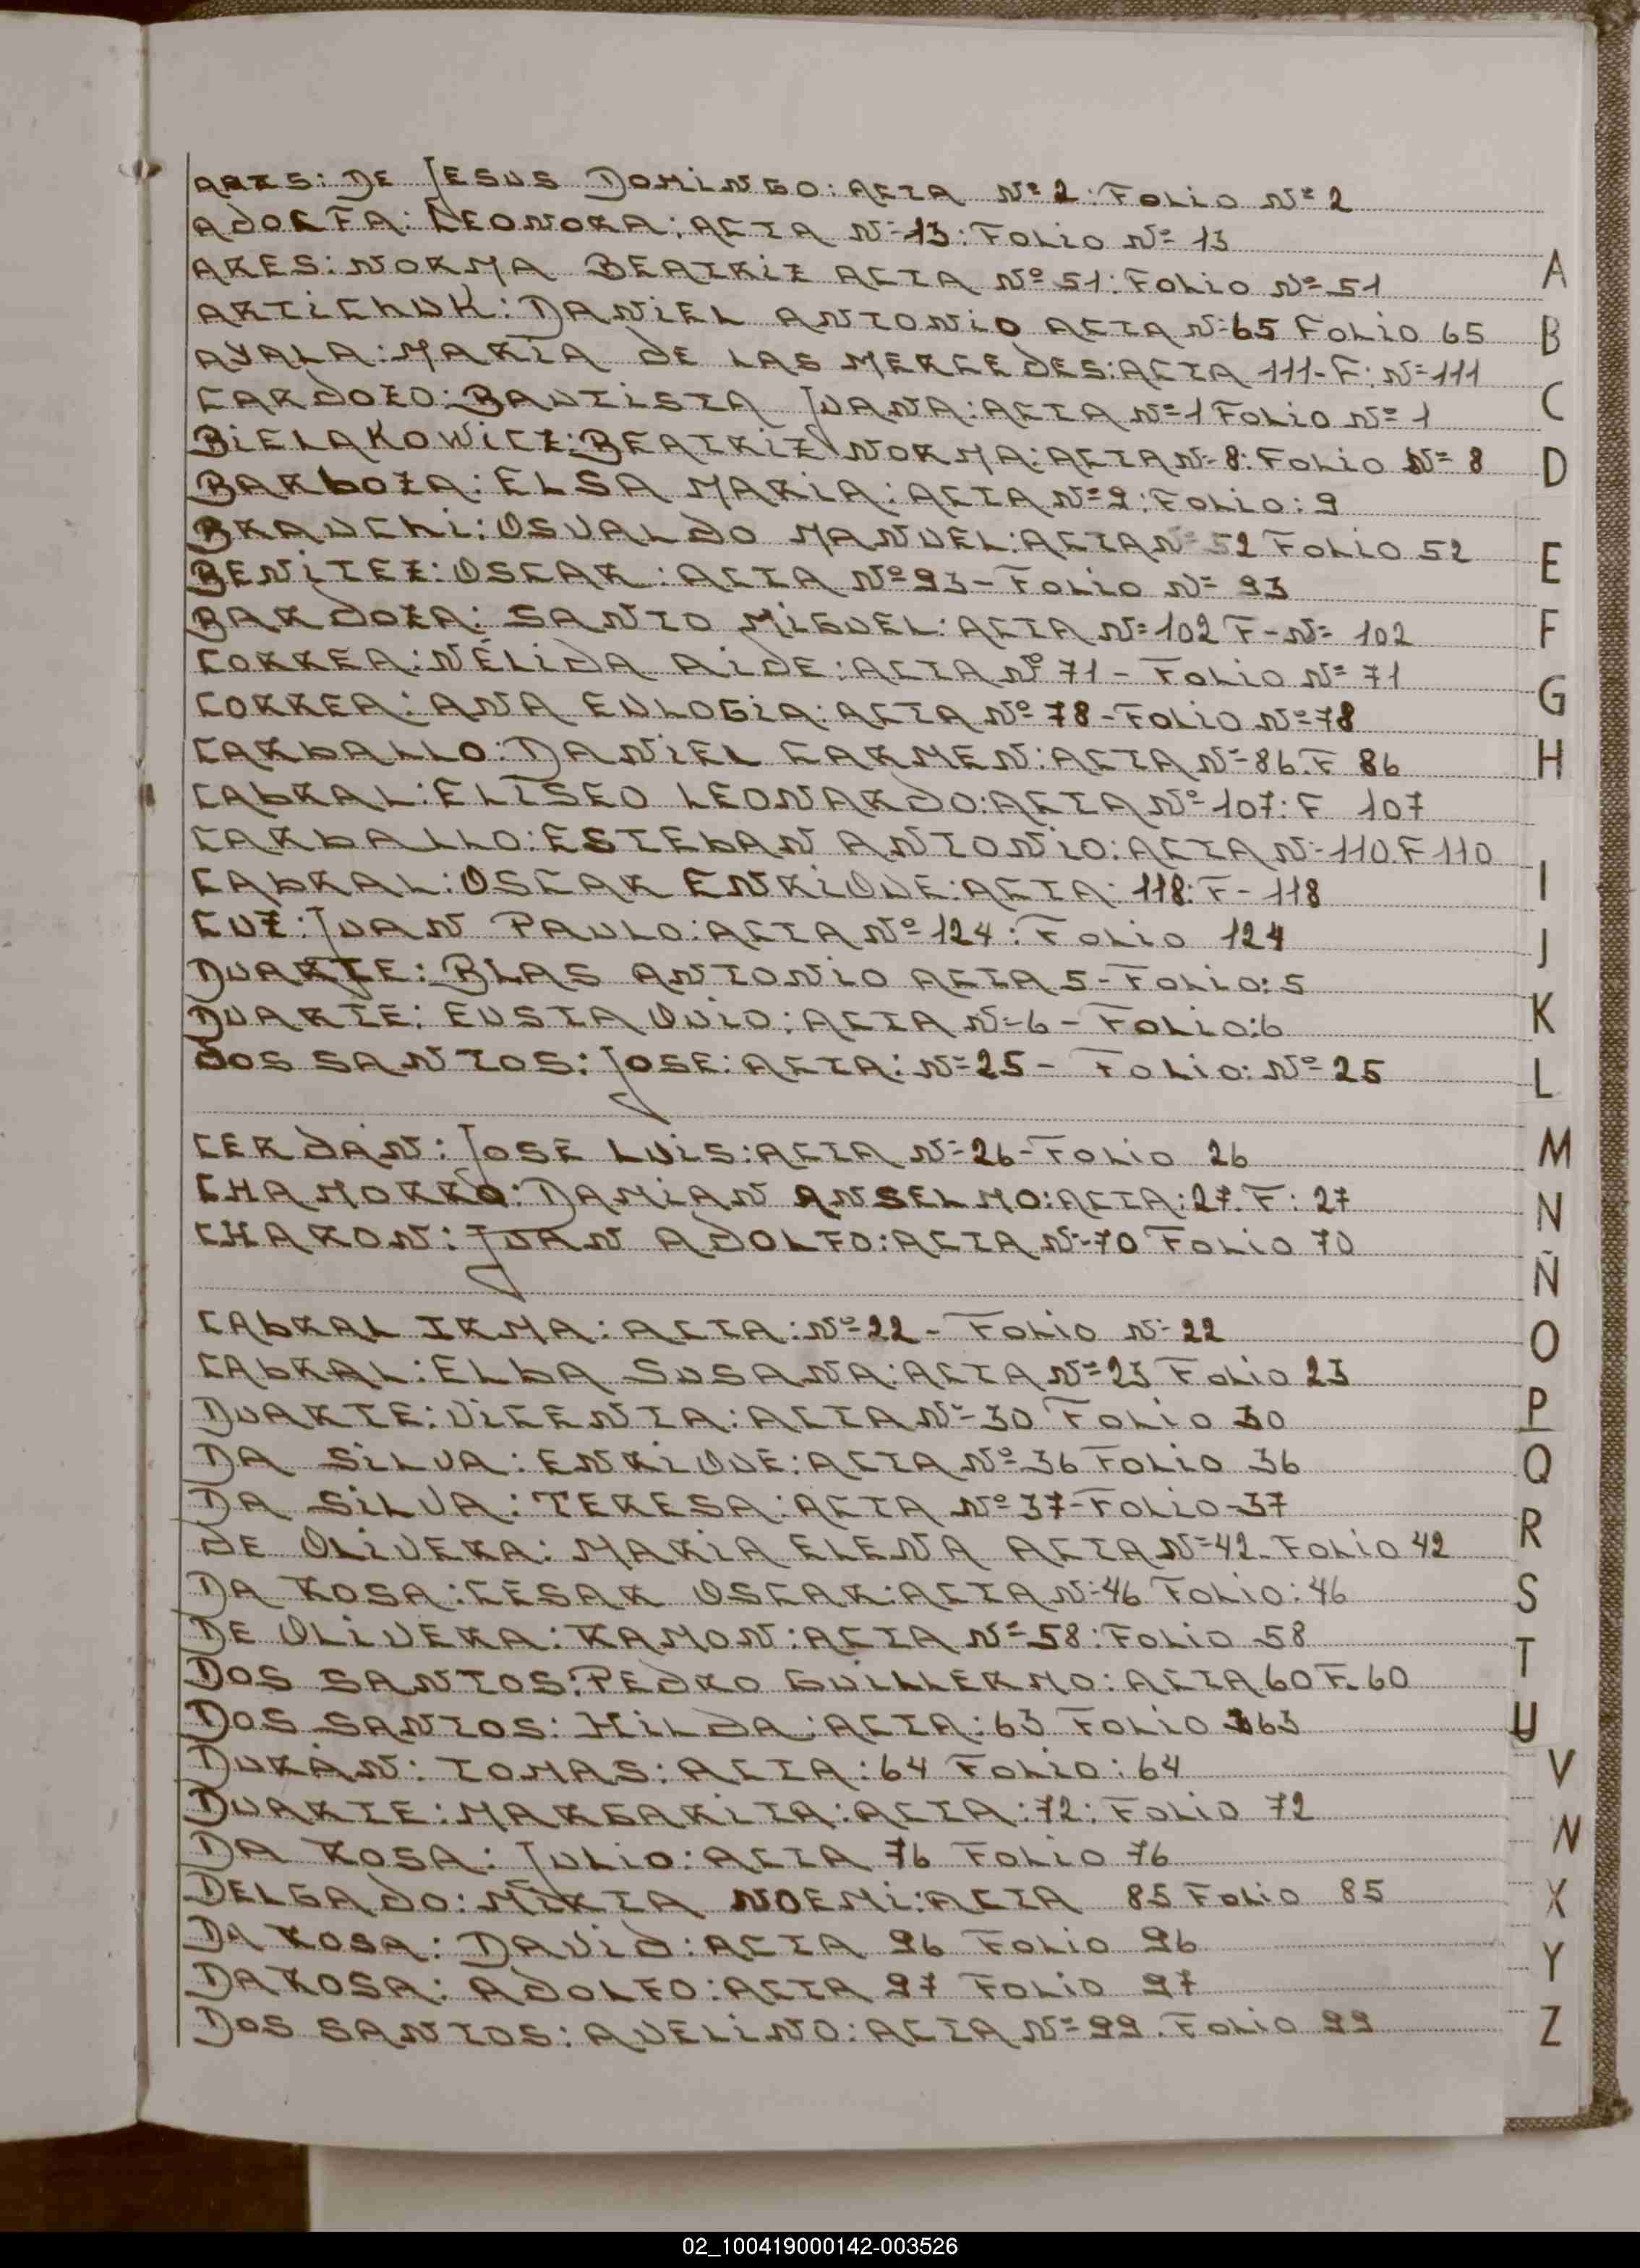 ARES: DE JESUS DOMINGO: ACTA Nº 2: FOLIO Nº 2
ADOLFA: LEONORA: ACTA Nº 13: FOLIO Nº 13
ARES: NORMA BEATRIZ ACTA Nº 51: FOLIO Nº 51
ARTICHUK: DANIEL ANTONIO ACTA Nº 65 FOLIO 65
AYALA: MARIA DE LAS MERCEDES: ACTA 111-F: Nº 111
CARDOZO: BAUTISTA JUANA: ACTA Nº 1 FOLIO Nº 1
BIELAKOWICZ: BEATRIZ NORMA: ACTA Nº 8: FOLIO Nº 8
BARBOZA: ELSA MARIA: ACTA Nº 9: FOLIO: 9
BRAUCHI: OSVALDO MANUEL: ACTA Nº 52 FOLIO 52
BENITEZ: OSCAR: ACTA Nº 93 - FOLIO Nº 93
BARDOZA: SANTO MIGUEL: ACTA Nº 102 F-Nº 102
CORREA: NÉLIDA AIDE: ACTA Nº 71 - FOLIO Nº 71
CORREA: ANA EULOGIA: ACTA Nº 78 - FOLIO Nº 78
CARBALLO: DANIEL CARMEN: ACTA Nº 86. F 86
CABRAL: ELISEO LEONARDO: ACTA Nº 107: F 107
CARBALLO: ESTEBAN ANTONIO: ACTA Nº 110. F 110
CABRAL: OSCAR ENRIQUE: ACTA: 118: F - 118
CUZ: JUAN PAULO: ACTA Nº 124: FOLIO 124
DUARTE: BLAS ANTONIO ACTA 5 - FOLIO: 5
DUARTE: EUSTAQUIO: ACTA Nº 6 - FOLIO: 6
DOS SANTOS: JOSE: ACTA: Nº 25 - FOLIO: Nº 25
CERDÁN: JOSE LUIS: ACTA Nº 26 - FOLIO 26
CHAMORRO: DAMIAN ANSELMO: ACTA: 27. F: 27
CHARON: JUAN ADOLFO: ACTA Nº 70 FOLIO 70
CABRAL IRMA: ACTA: Nº 22 - FOLIO Nº 22
CABRAL: ELBA SUSANA: ACTA Nº 23 FOLIO 23
DUARTE: VICENTA: ACTA Nº 30 FOLIO 30
DA SILVA: ENRIQUE: ACTA Nº 36 FOLIO 36
DA SILVA: TERESA: ACTA Nº 37 - FOLIO - 37
DE OLIVERA: MARIA ELENA ACTA Nº 42 - FOLIO 42
DA ROSA: CÉSAR OSCAR: ACTA Nº 46 FOLIO: 46
DE OLIVERA: RAMON: ACTA Nº 58: FOLIO 58
DOS SANTOS: PEDRO GUILLERMO: ACTA 60 F. 60
DOS SANTOS: HILDA: ACTA: 63 FOLIO 63
DURÁN: TOMAS: ACTA: 64 FOLIO: 64
DUARTE: MARGARITA: ACTA: 72: FOLIO 72
DA ROSA: JULIO: ACTA 76 FOLIO 76
DELGADO: MIRTA NOEMI: ACTA 85 FOLIO 85
DA ROSA: DAVID: ACTA 96 FOLIO 96
DA ROSA: ADOLFO: ACTA 97 FOLIO 97
DOS SANTOS: AVELINO: ACTA Nº 99. FOLIO 99
A
B
C
D
E
F
G
H
I
J
K
L
M
N
Ñ
O
P
Q
R
S
T
U
V
W
X
Y
Z
02_100419000142-003526